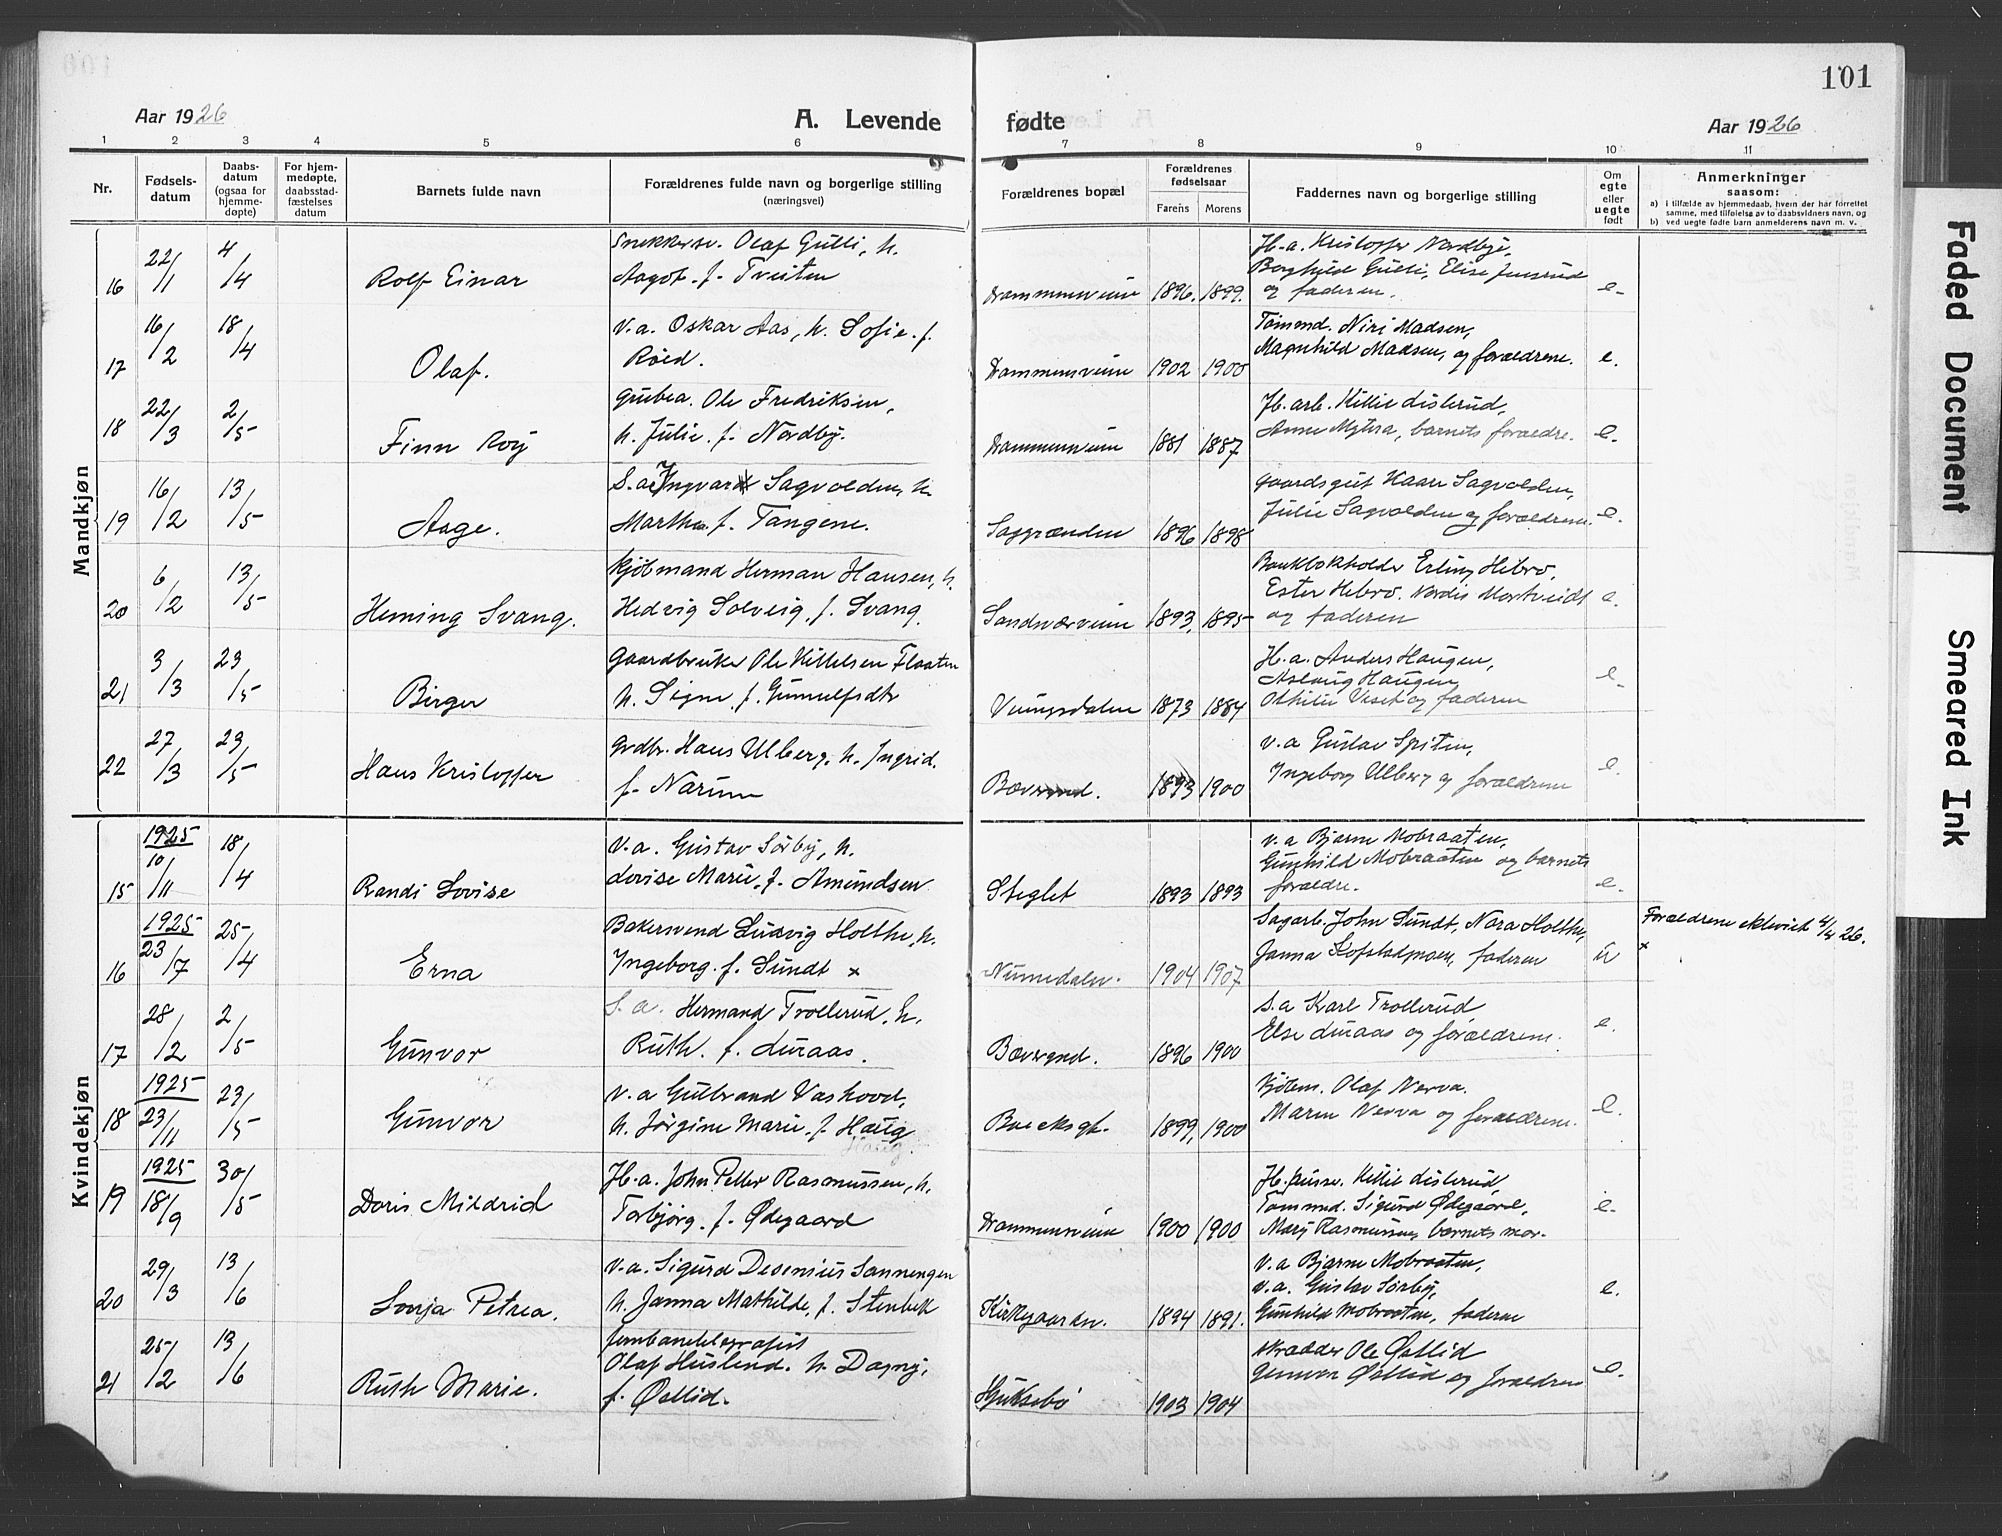 101
Aar 1926
A. Levende
fødte
Aar 1926
1 2 3 4 5 6 7 8 9 10 11
Nr.
Fødsels-
datum
Daabs-
datum
(ogsaa for
hjemme-
døpte)
For hjem-
medøpte,
daabsstad-
fæstelses
datum
Barnets fulde navn
Forældrenes fulde navn og borgerlige stilling
(næringsvei)
Forældrenes bopæl
Forældrenes
fødselsaar
Farens Morens
Faddernes navn og borgerlige stilling
Om
egte
eller
uegte
født
Anmerkninger
saasom:
a) i tilfælde av hjemmedaab, hvem der har forrettet
samme, med tilføielse av to daabsvidners navn, og
b) ved uegte fødte barn anmelderens navn m. v.
Mandkjøn
16 22/1 4/4 Rolf Einar
Snekkersv. Olaf Gulli, h.
Aagot f. Tveiten
Drammensveien 1896. 1899.
H.a. Kristoffer Nordbye,
Borghild Gulli, Elise Jensrud
og faderen.
e.
17 16/2 18/4 Olaf.
V.a. Oskar Aas, h. Sofie f.
Røed.
Drammensveien 1902 1900
Tømmd. Nizi Madsen,
Magnhild Madsen, og forældrene.
e.
18 22/3 2/5 Finn Roy
Grubea. Ole Fredriksen,
h. Julie f. Nordby.
Drammensveien 1881 1887
H. arb. Kittil Lislerud,
Anne Myhra, barnets forældre.
e.
19 16/2 13/5 Aage.
S.a. Ingvar Sagvolden, h.
Martha f. Tangene.
Saggrænden 1896 1898
Gaardsgut Kaare Sagvolden,
Julie Sagvolden og forældrene.
e.
20 6/2 13/5 Heming Svang.
Kjøbmand Herman Hansen, h.
Hedvig Solveig, f. Svang.
Sandsværveien 1893, 1895
Bankbokholder Erling Hebro,
Ester Hebro, Nordis Mortveidt
og faderen
e.
21 3/3 23/5 Birger
Gaardbruker Ole Kittelsen Flaaten
h. Signe f. Gunnulfsdtr
Vuingsdalen 1873 1884
H.a. Anders Haugen,
Aslaug Haugen
Othilie Viset og faderen
e.
22 27/3 23/5 Hans Kristoffer
Grdbr. Hans Ulberg, h. Ingrid.
f. Narum
Bævergrd. 1893 1900
V.a Gustav Spiten,
Ingeborg Ulberg og forældrene
e.
Kvindekjøn
15 1925 10/11 18/4 Randi Lovise
V.a. Gustav Sørby, h.
Lovise Marie, f. Amundsen
Steglet 1893 1893
V.a Bjarne Mobraaten,
Gunhild Mobraaten og barnets
forældre.
e.
16 1925 23/7 25/4 Erna
Bakersvend Ludvig Holthe, h.
Ingeborg f. Sundt x
Numedalen. 1904 1907
Sagarb. John Sundt, Nora Holthe,
Janna Kofstadmoen, faderen
u
Forældrene ekteviet 4/4 26.
x
17 28/2 2/5 Gunvor
S.a. Hermand Trollerud, h.
Ruth f. Luraas.
Bævergrd. 1896 1900
S.a Karl Trollerud
Else Luraas og forældrene.
e.
18 1925 23/11 23/5 Gunvor
V.a Gulbrand Vashovd,
h. Jørgine Marie f. Haug
Haug.
Baecksgt. 1899, 1900
Kjøtm. Olaf Nerva.
Maren Nerva og forældrene.
e.
19 1925 18/9 30/5 Doris Mildrid
H.a. John Petter Rasmussen, h.
Torbjørg f. Ødegaard
Drammensveien 1900 1900
H.pusse. Kittil Lislerud
Tømmd. Sigurd Ødegaard,
Mary Rasmussen, barnets mor.
e.
20 29/3 13/6 Sonja Petrea.
V.a. Sigurd Desenius Sønnengen
h. Janna Mathilde, f. Stenbek
Kirkegaarden. 1894 1891.
V.a Bjarne Mobraaten,
V.a. Gustav Sørby,
Gunhild Mobraaten, faderen
e.
21 25/2 13/6 Ruth Marie.
Jernbanetelegrafist
Olaf Huslend. h. Dagny,
f. Østlid.
Hjuksebø 1903 1904
Skrædder Ole Østlid
Gunvor Østlid og forældrene
e.
Faded Document
Smeared Ink